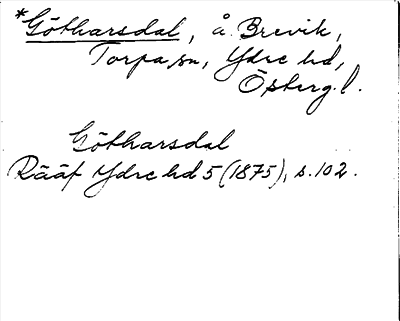 *Götharsdal, å Brevik,
Torpa sn, Ydre hd,
Östergl.
Götharsdal
Rääf Ydre hd 5 (1875), s. 102.